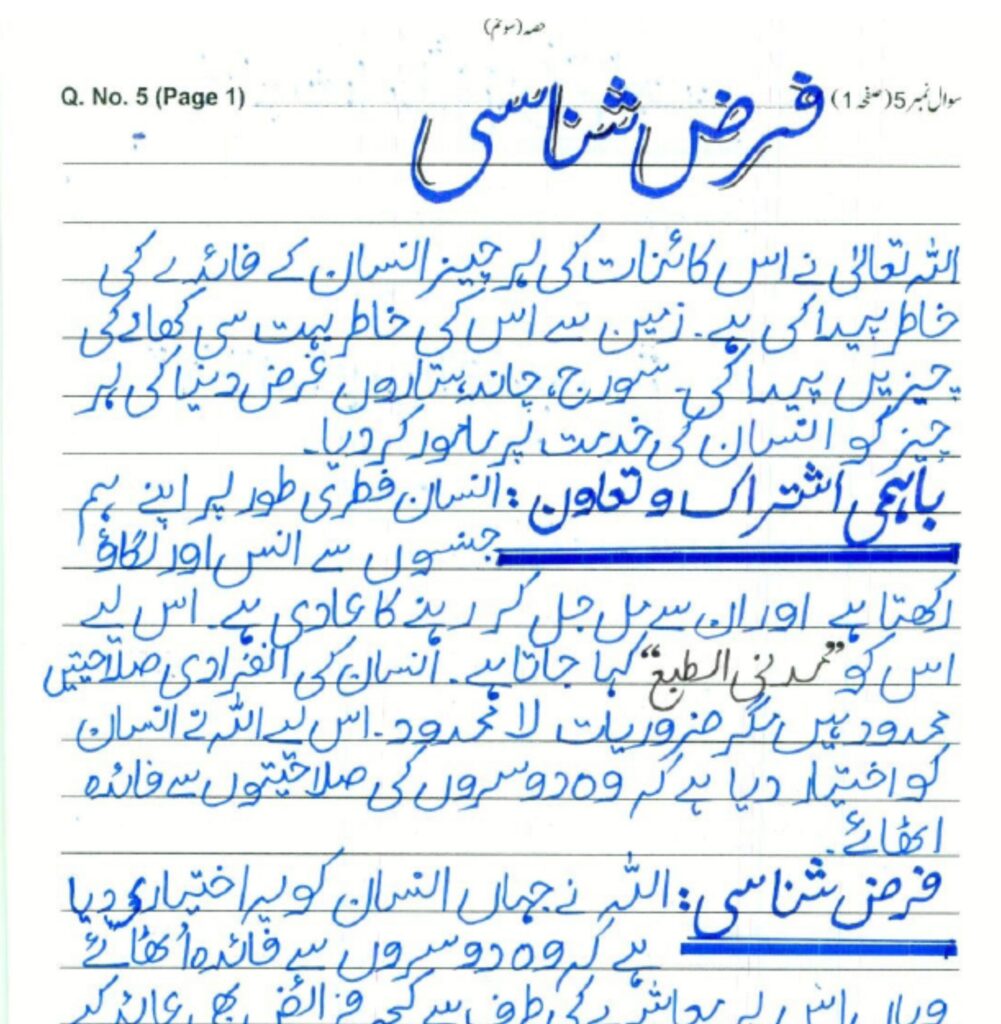 حصہ (سوئم)
Q. No. 5 (Page 1)
سوال نمبر 5 (صفحہ 1)
فرض شناسی
اللہ تعالیٰ نے اس کائنات کی ہر چیز انسان کے فائدے کی
خاطر پیدا کی ہے۔ زمین سے اس کی خاطر بہت سی کھانے کی
چیزیں پیدا کی۔ سورج، چاند، ستاروں غرض دنیا کی ہر
چیز کو انسان کی خدمت پر مامور کر دیا۔
باہمی اشتراک و تعاون: انسان فطری طور پر اپنے ہم
جنسوں سے انس اور لگاؤ
رکھتا ہے اور ان سے مل جل کر رہنے کا عادی ہے۔ اس لیے
اس کو "مدنی الطبع" کہا جاتا ہے۔ انسان کی انفرادی صلاحیتیں
محدود ہیں مگر ضروریات لا محدود۔ اس لیے اللہ نے انسان
کو اختیار دیا ہے کہ وہ دوسروں کی صلاحیتوں سے فائدہ
اٹھائے۔
فرض شناسی: اللہ نے جہاں انسان کو یہ اختیار دیا
ہے کہ وہ دوسروں سے فائدہ اُٹھائے
وہاں اس پر معاشرے کی طرف سے کچھ فرائض بھی عائد کر